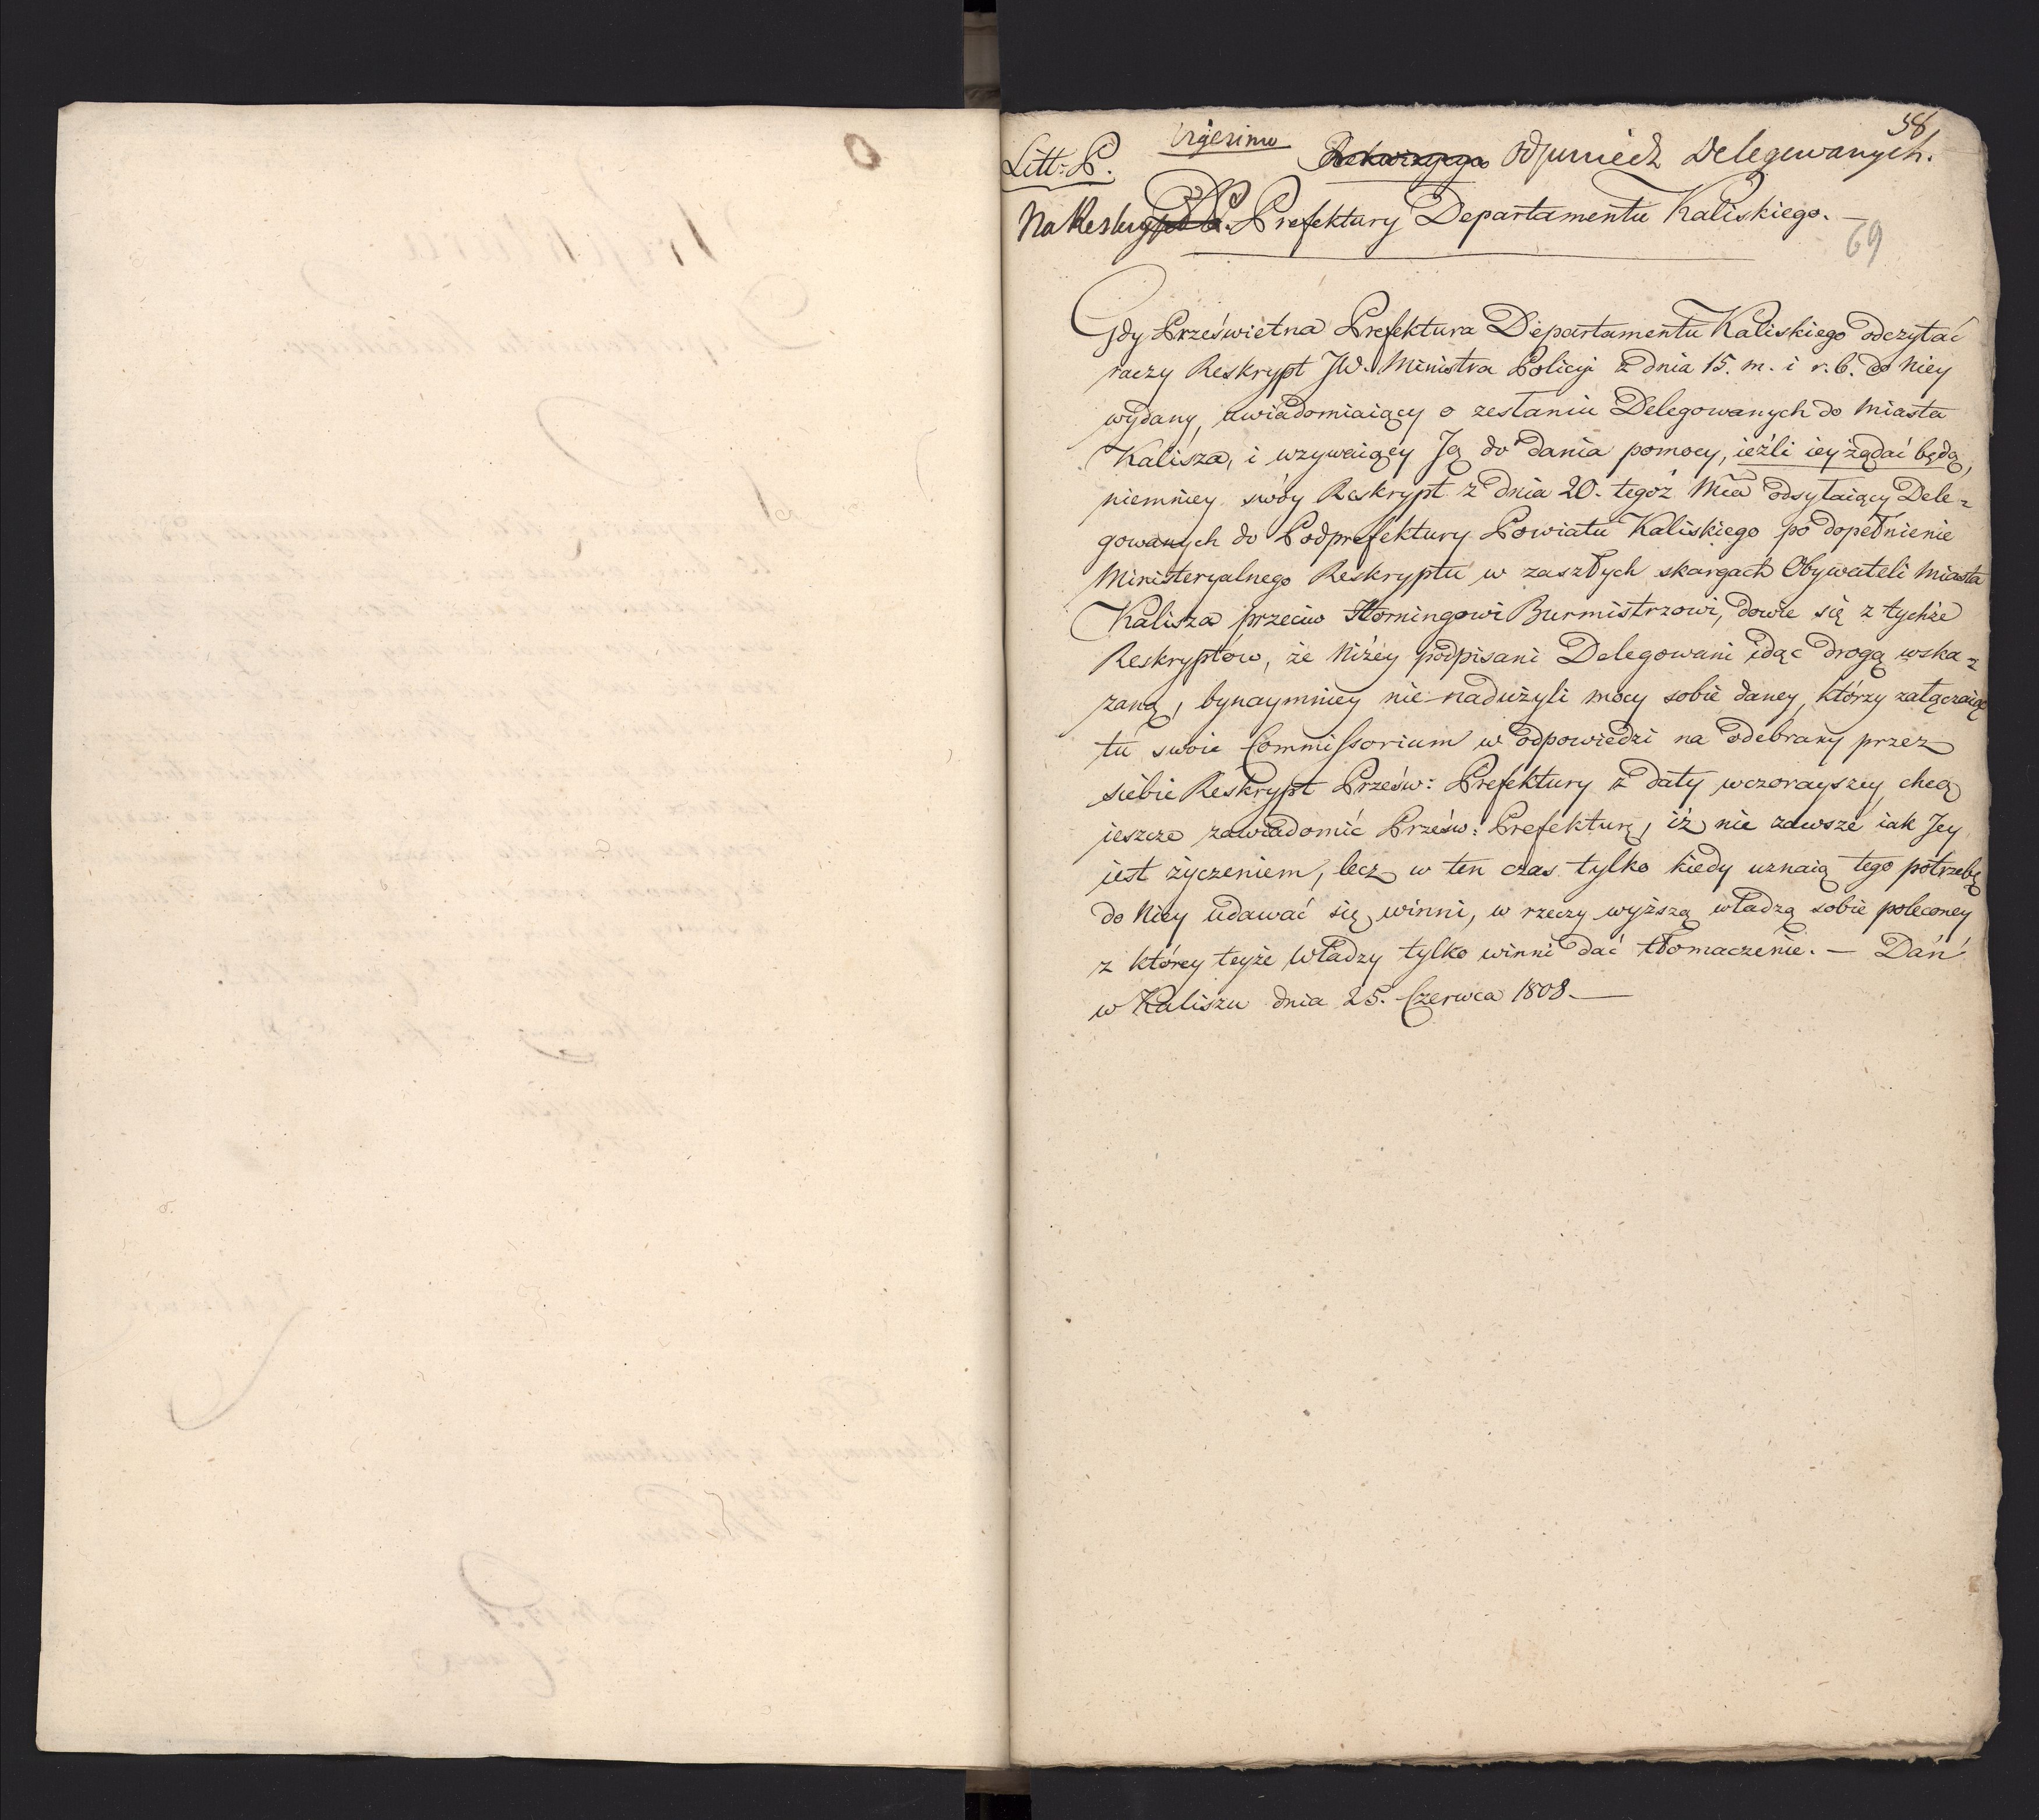 58
Litt: P. Vigesimo Odpowiedz Delegowanych.
Na Reskrypt P. Prefektury Departamentu Kaliskiego. —
69
Gdy Prześwietna Prefektura Departamentu Kaliskiego odczytać
raczy Reskrypt JW. Ministra Policyi z dnia 15. m. i r. b. do Niey
wydany, uwiadomiaiący o zesłaniu Delegowanych do Miasta
Kalisza, i wzywaiącÿ Ją do dania pomocy, ieźli iey żądać będą,
niemniey swóy Reskrypt z dnia 20. tegoż Mca odsyłaiący Dele=
gowanych do Podprefektury Powiatu Kaliskiego po dopełnienie
Ministeryalnego Reskryptu w zaszłych skargach Obywateli Miasta
Kalisza przeciw Horningowi Burmistrzowi, dowie się z tychże
Reskryptów, że Niżéy podpisani Delegowani idąc drogą wska=
zaną, bynaymniey nie nadużyli mocy sobie daney, którzy załączaiąc
tu swoie Commissorium w odpowiedzi na odebrany przez
siebie Reskrypt Prześw: Prefektury z daty wczorayszey, chcą
ieszcze zawiadomić Prześw: Prefekturę, iż nie zawsze iak Jey
iest życzeniem, lecz w ten czas tylko kiedy uznaią tego potrzebę
do Niey udawać się winni, w rzeczy wyższą władzą sobie poleconey
z którey teyże Władzy tylko winni dać tłomaczenie. — Dań
w Kaliszu dnia 25. Czerwca 1808. —